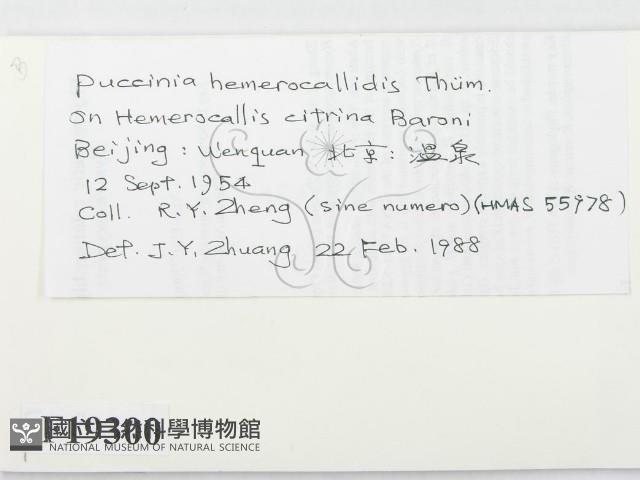 Puccinia hemerocallidis Thüm.
on Hemerocallis citrina Baroni
Beijing: Wenquan 北京: 温泉
12 Sept. 1954
Coll. R.Y. Zheng (sine numero)(HMAS 55978)
Det. J.Y. Zhuang 22 Feb. 1988
F19300
國立自然科學博物館
NATIONAL MUSEUM OF NATURAL SCIENCE